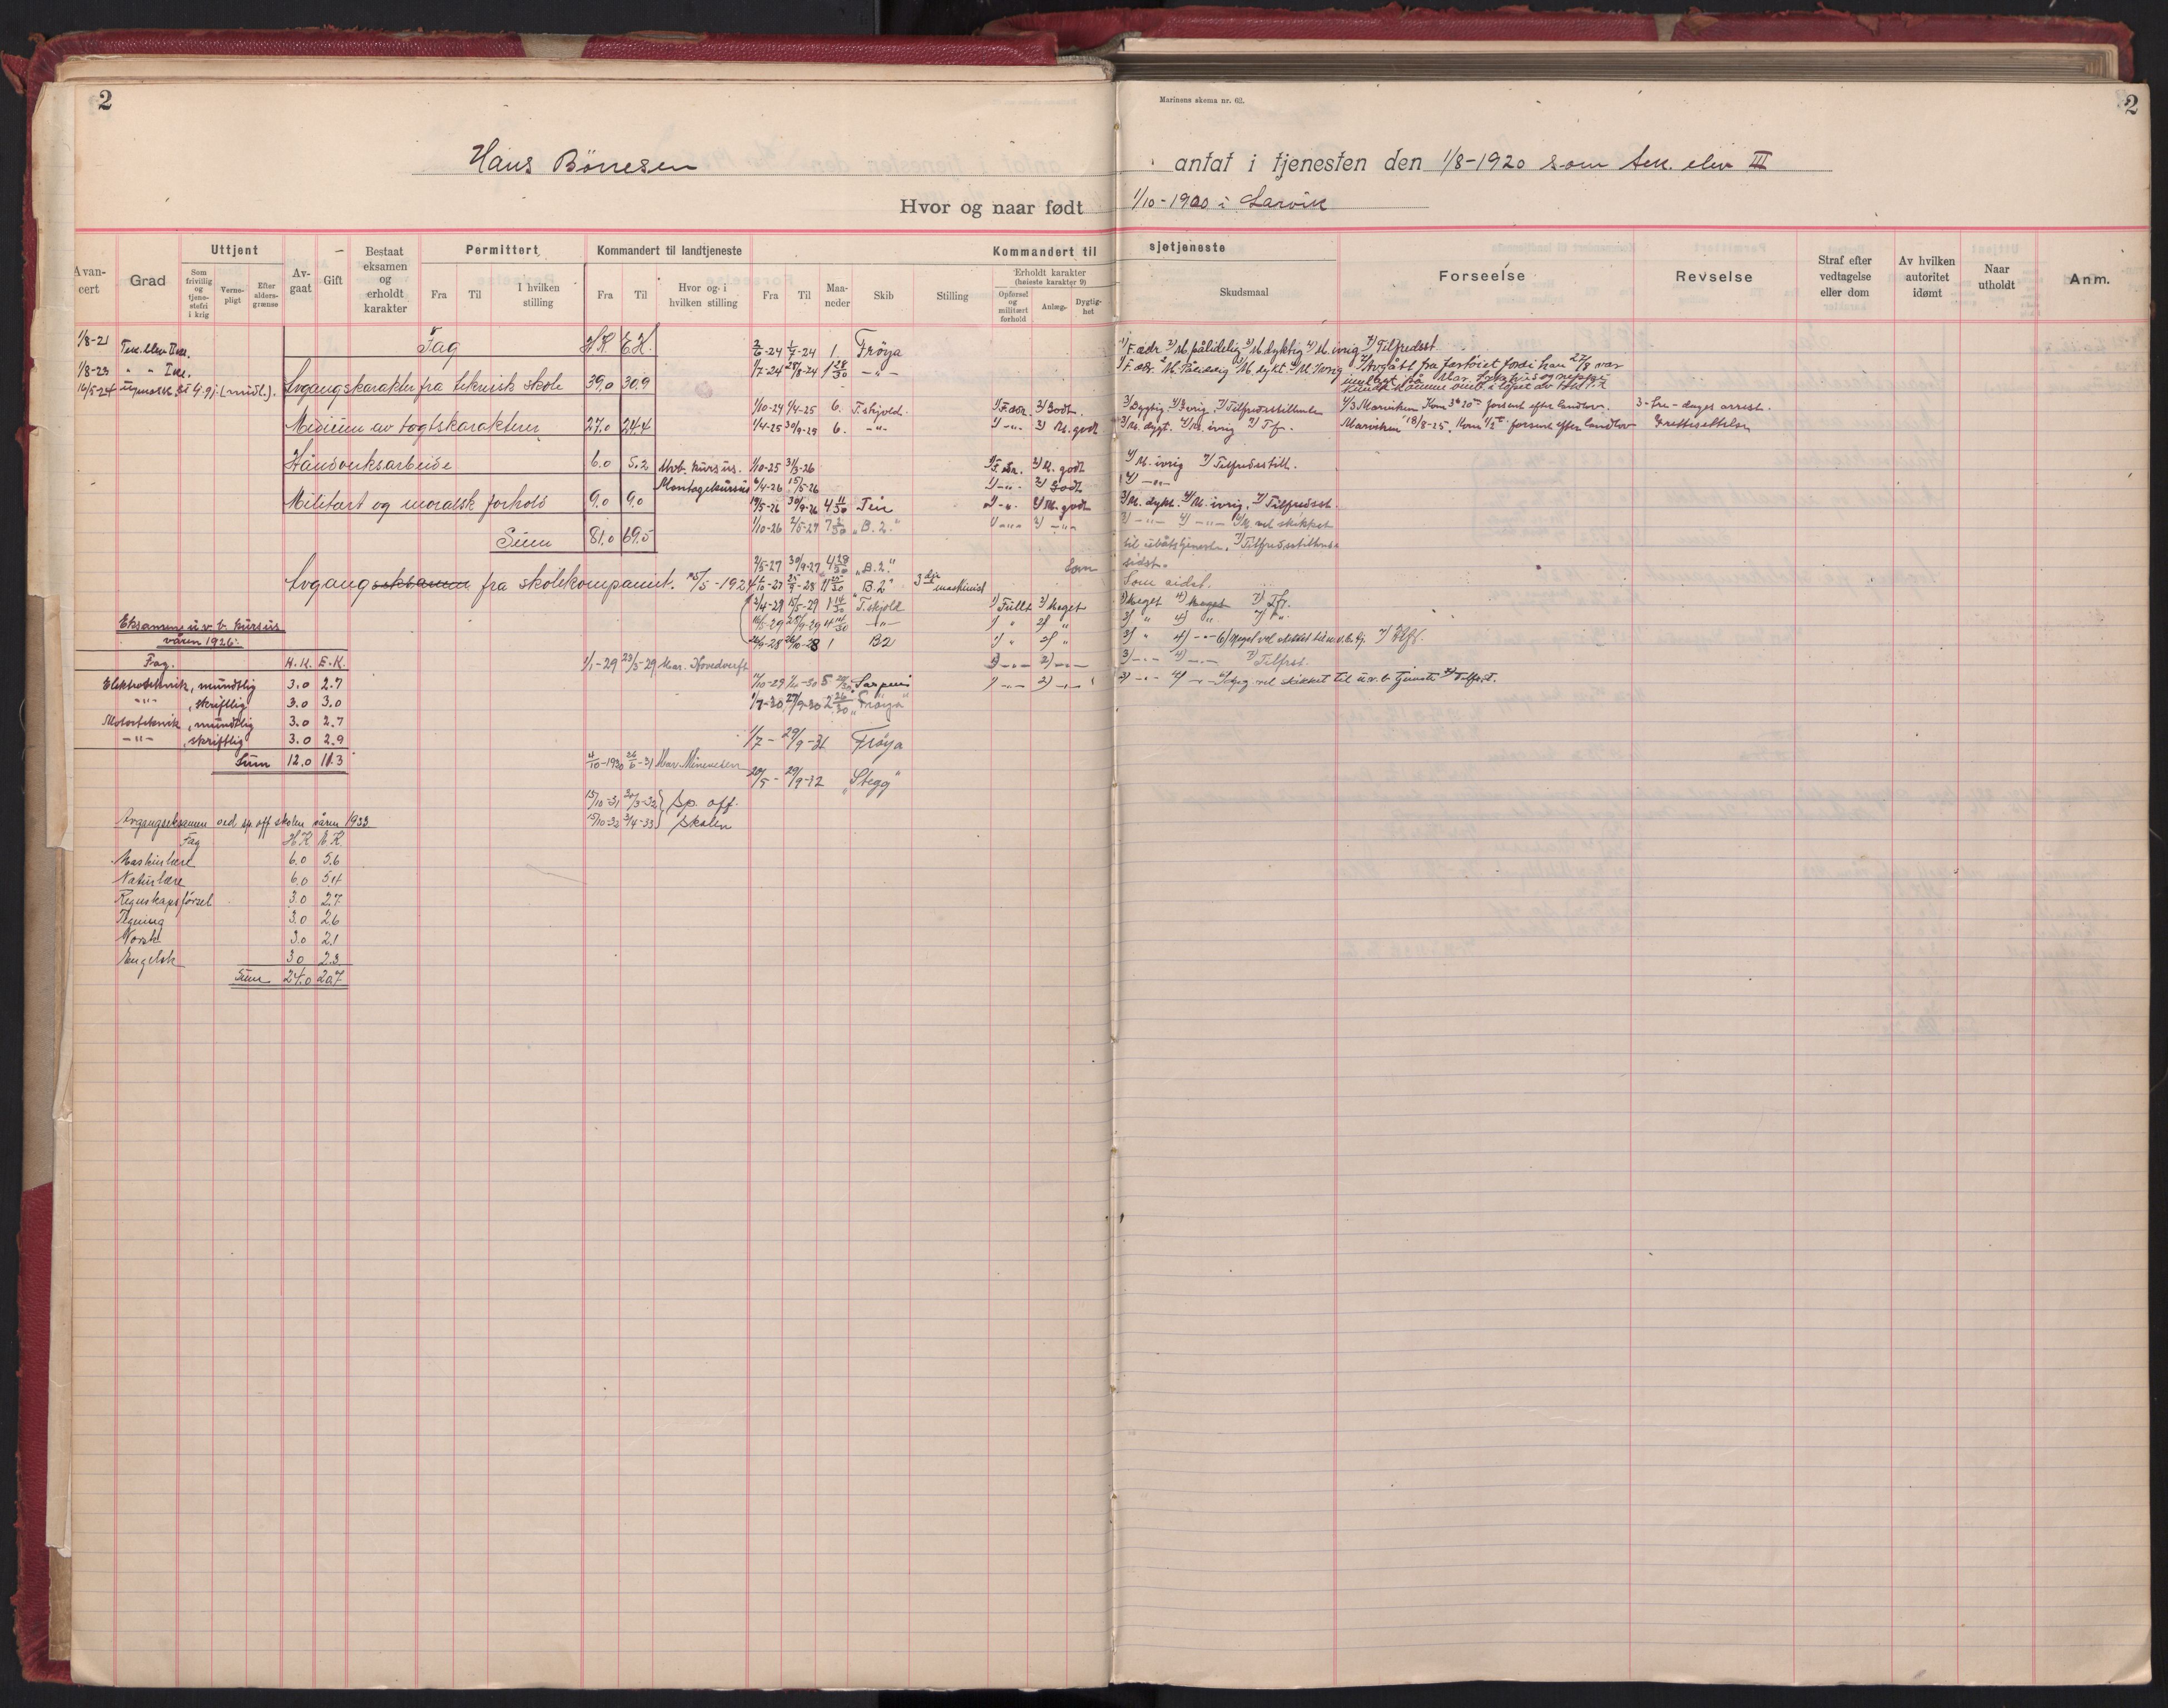 2
Marinens skema nr. 62.
2
Hans Bönesen
antat i tjenesten den 1/8-1920 som tek. elev III
Hvor og naar født 1/10-1900 i Larvik
Avan-
cert
Grad
Uttjent
Som
frivillig
og
tjene-
stefri
i krig
Verne-
pligt
Efter
alders-
grænse
Av-
gaat
Gift
Bestaat
eksamen
og
erholdt
karakter
Permittert
Fra
Til
I hvilken
stilling
Kommandert til landtjeneste
Fra
Til
Hvor og i
hvilken stilling
Kommandert til sjøtjeneste
Fra
Til
Maa-
neder
Skib
Stilling
Erholdt karakter
(høieste karakter 9)
Opførsel
og
militært
forhold
Anlæg
Dygtig-
het
Skudsmaal
Forseelse
Revselse
Straf efter
vedtagelse
eller dom
Av hvilken
autoritet
idømt
Naar
utholdt
Anm.
1/8-21 Tek. elev II kl.
1/8-23 " " I kl.
16/5-24
Fag H.K. E.K.
Avgangskarakter fra teknisk skole 39.0 30.9
Medium av togtskarakterer 27.0 24.4
Håndverksarbeide 6.0 5.2
Militært og moralsk forhold 9.0 9.0
Sum 81.0 69.5
Avgangseksamen fra skolekompaniet. 15/5-1924
2/6-24 1/7-24 1 Frøya
1/7-24 28/8-24 1 28/30 -"-
1/10-24 1/4-25 6. T.skjold.
1/4-25 30/9-25 6. -"-
Uvb. kursus. 1/10-25 31/3-26
Montagekursus 6/4-26 15/5-26
19/5-26 30/9-26 4 11/30 Teir
1/10-26 2/5-27 "B.2."
2/5-27 30/9-27 4 28/30 "B.2."
"B.2" 3die maskinist
3/4-29 15/5-29 1 14/30 T.skjold
16/5-29 4 14/30 -"-
26/9-28 26/10-28 1 B2
1/1-29 23/3-29 Mar. Hovedverft
"Sarpen"
"Frøya"
1/7 - 29/9-31 Frøya
4/10-1930 26/6-31 Mar. Minevesen
20/5 - 29/9-32 "Stegg"
15/10-31 30/3-32 } sp. off.
15/10-32 3/4-33 } skolen
1) F. ædr. 2) M. pålidelig 3) M. dyktig 4) M. ivrig 7) Tilfredsst.
1) F. ædr. 2) M. Pålidelig 3) M. dykt. 4) M. Ivrig 7) Avgått fra fartöiet fordi han 27/8 var
1) F. ædr. 2) Godt. 3) Dygtig. 4) Ivrig. 7) Tilfredsstillende
1) -"- 2) M. godt 3) M. dygt. 4) M. ivrig 7) Tf.
1) F. ædr. 2) M. godt 4) M. ivrig 7) Tilfredsstill.
1) -"- 2) Godt 4) -"-
1) -"- 2) M. godt 3) M. dykt. 4) M. ivrig. 7) Tilfredsst.
1) -"- 2) -"- 3) -"- 4) -"- 6) M. vel skikket
til ubåtstjeneste. 7) Tilfredsstillende
Som sidst.
Som sidst.
1) Fullt 2) Meget 3) Meget 4) Meget 7) Tfr.
1) " 2) " 3) " 4) " 7) "
1) " 2) " 3) " 4) -"- 6) Meget vel skikket til u.v.b. tj. 7) Tilfs.
1) -"- 2) -"- 3) -"- 4) -"- 7) Tilfrst.
1) -"- 2) -"- 3) -"- 4) -"- 6) Meg. vel skikket til u.v.b. tjeneste 7) Tilfr.st.
4/3 Marviken Kom 3 t 20 m forsent efter landlov. 3 - tre - dages arrest.
Marviken 18/8-25. Kom 1/2 t forsent efter landlov Irettesettelse
Eksamen u.v.b. kursus
våren 1926.
Fag. H.K. E.K.
Elektroteknik, mundtlig 3.0 2.7
-"- , skriftlig 3.0 3.0
Motorteknik, mundtlig 3.0 2.7
-"- , skriftlig 3.0 2.9
Sum 12.0 11.3
Avgangseksamen ved sp. off. skolen våren 1933
Fag H.K. E.K.
Maskinlære 6.0 5.6
Naturlære 6.0 5.4
Regnskapsførsel 3.0 2.7
Tegning 3.0 2.6
Norsk 3.0 2.1
Engelsk 3.0 2.3
Sum 24.0 20.7